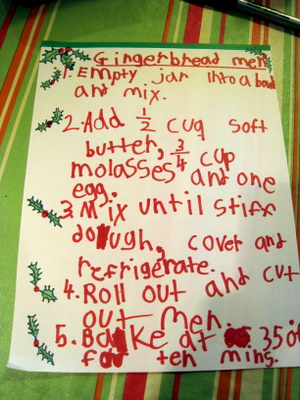 Gingerbread men
1. Empty jar into a bowl
and mix.
2. Add 1/2 cug soft
butter, 3/4 cup
molasses and one
egg.
3. Mix until stiff
dough, cover and
refrigerate.
4. Roll out and cut
out men.
5. Bake at 350°
for ten mins.